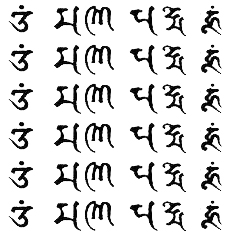 𑖌𑖽 𑖦𑖜𑖰 𑖢𑖟𑖿𑖦𑖸 𑖮𑖳𑖽
𑖌𑖽 𑖦𑖜𑖰 𑖢𑖟𑖿𑖦𑖸 𑖮𑖳𑖽
𑖌𑖽 𑖦𑖜𑖰 𑖢𑖟𑖿𑖦𑖸 𑖮𑖳𑖽
𑖌𑖽 𑖦𑖜𑖰 𑖢𑖟𑖿𑖦𑖸 𑖮𑖳𑖽
𑖌𑖽 𑖦𑖜𑖰 𑖢𑖟𑖿𑖦𑖸 𑖮𑖳𑖽
𑖌𑖽 𑖦𑖜𑖰 𑖢𑖟𑖿𑖦𑖸 𑖮𑖳𑖽